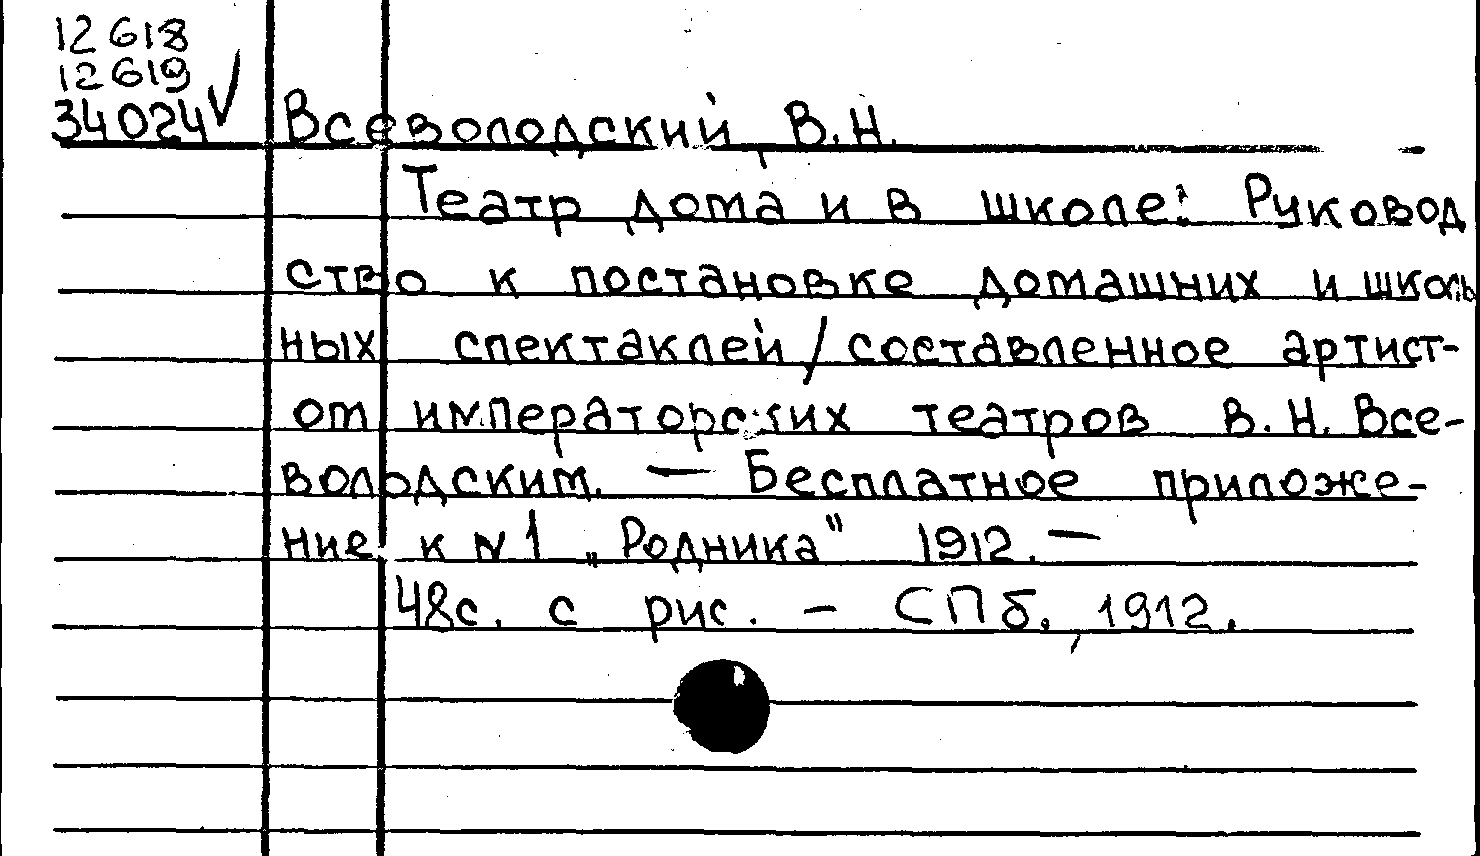 12618
12619
34024 ✓ Всеволодский, В.Н.
Театр дома и в школе: Руковод
ство к постановке домашних и школь
ных спектаклей / составленное артист-
ом императорских театров В.Н. Все-
володским. — Бесплатное приложе-
ние к №1 „Родника" 1912. —
48с. с рис. – СПб., 1912.